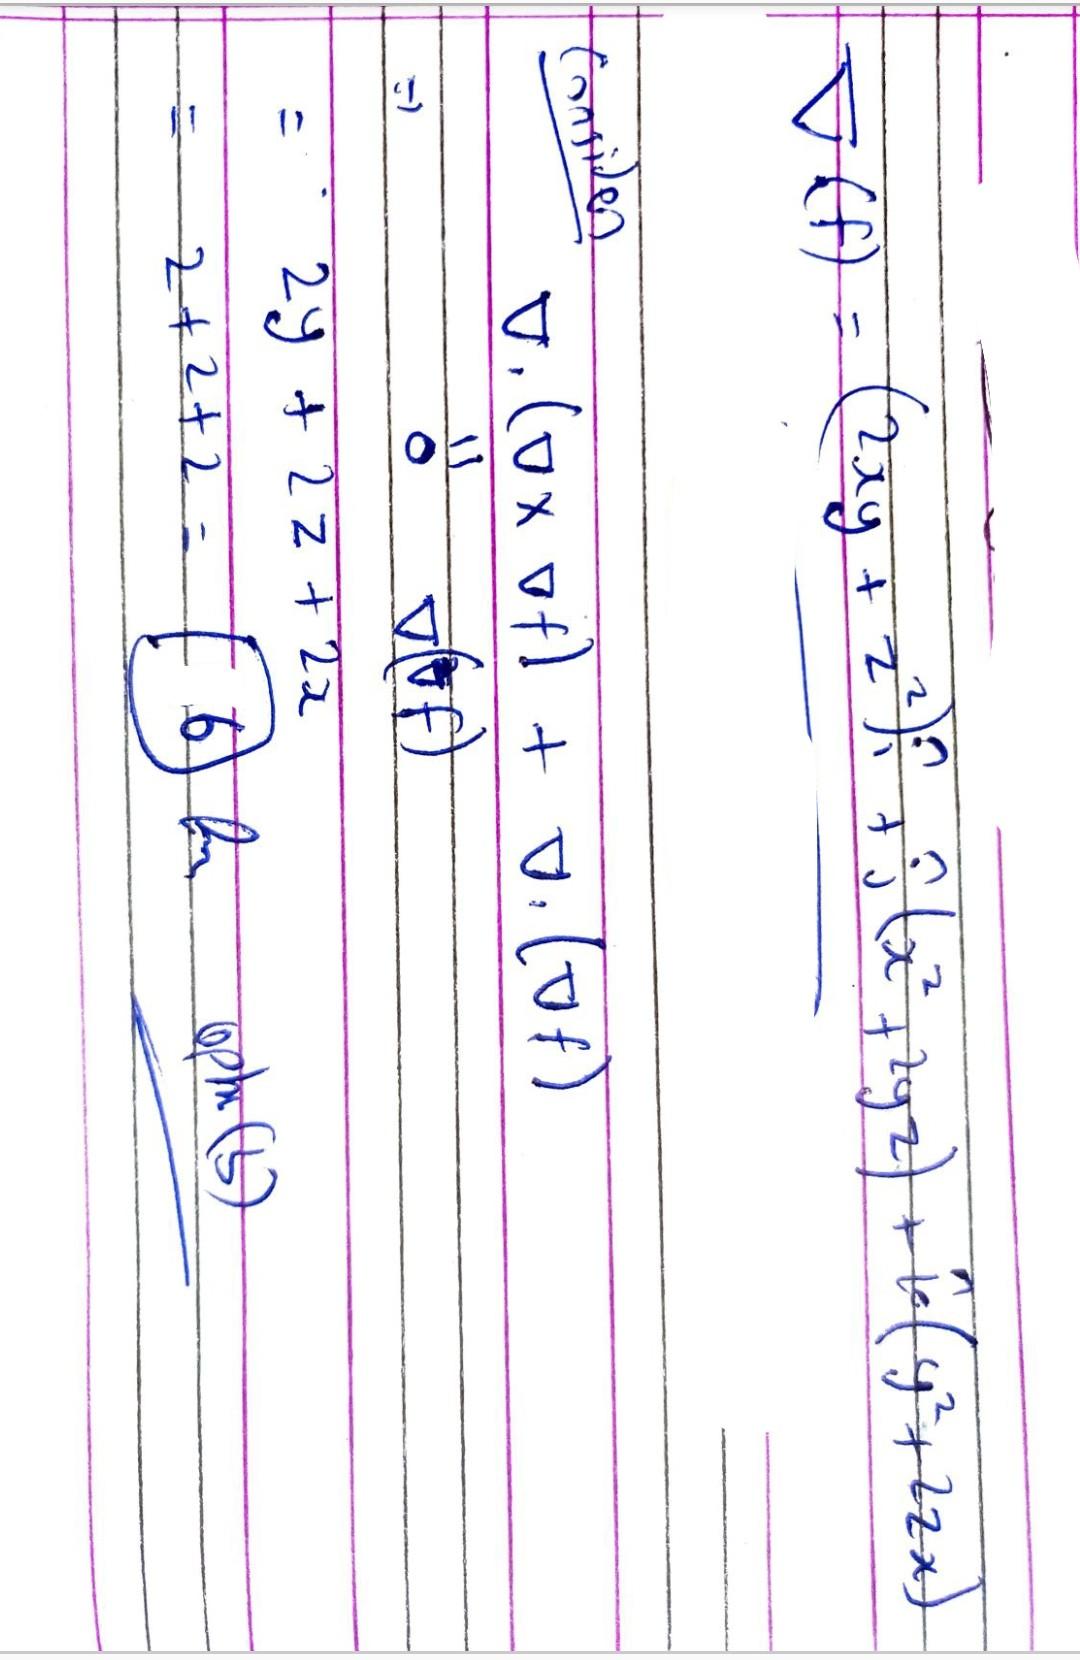 ∇(f) = (2xy + z²)î + ĵ(x² + 2yz) + k̂(y² + 2zx)
Consider
∇.(∇x ∇f) + ∇.(∇f)
||
⇒ 0 ∇(∇f)
= 2y + 2z + 2x
= 2+2+2 = 6 option (b)